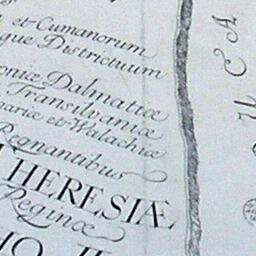 et Cumanorum
que Districtuum
Dalmatiæ
Transilvaniæ
et Walachiæ
Regnantibus
THERESIÆ
Reginæ